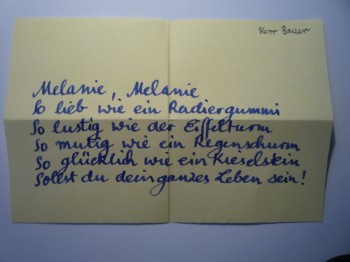 Herr Bauer
Melanie, Melanie
So lieb wie ein Radiergummi
So lustig wie der Eiffelturm
So mutig wie ein Regenschurm
So glücklich wie ein Kieselstein
Sollst du dein ganzes Leben sein!